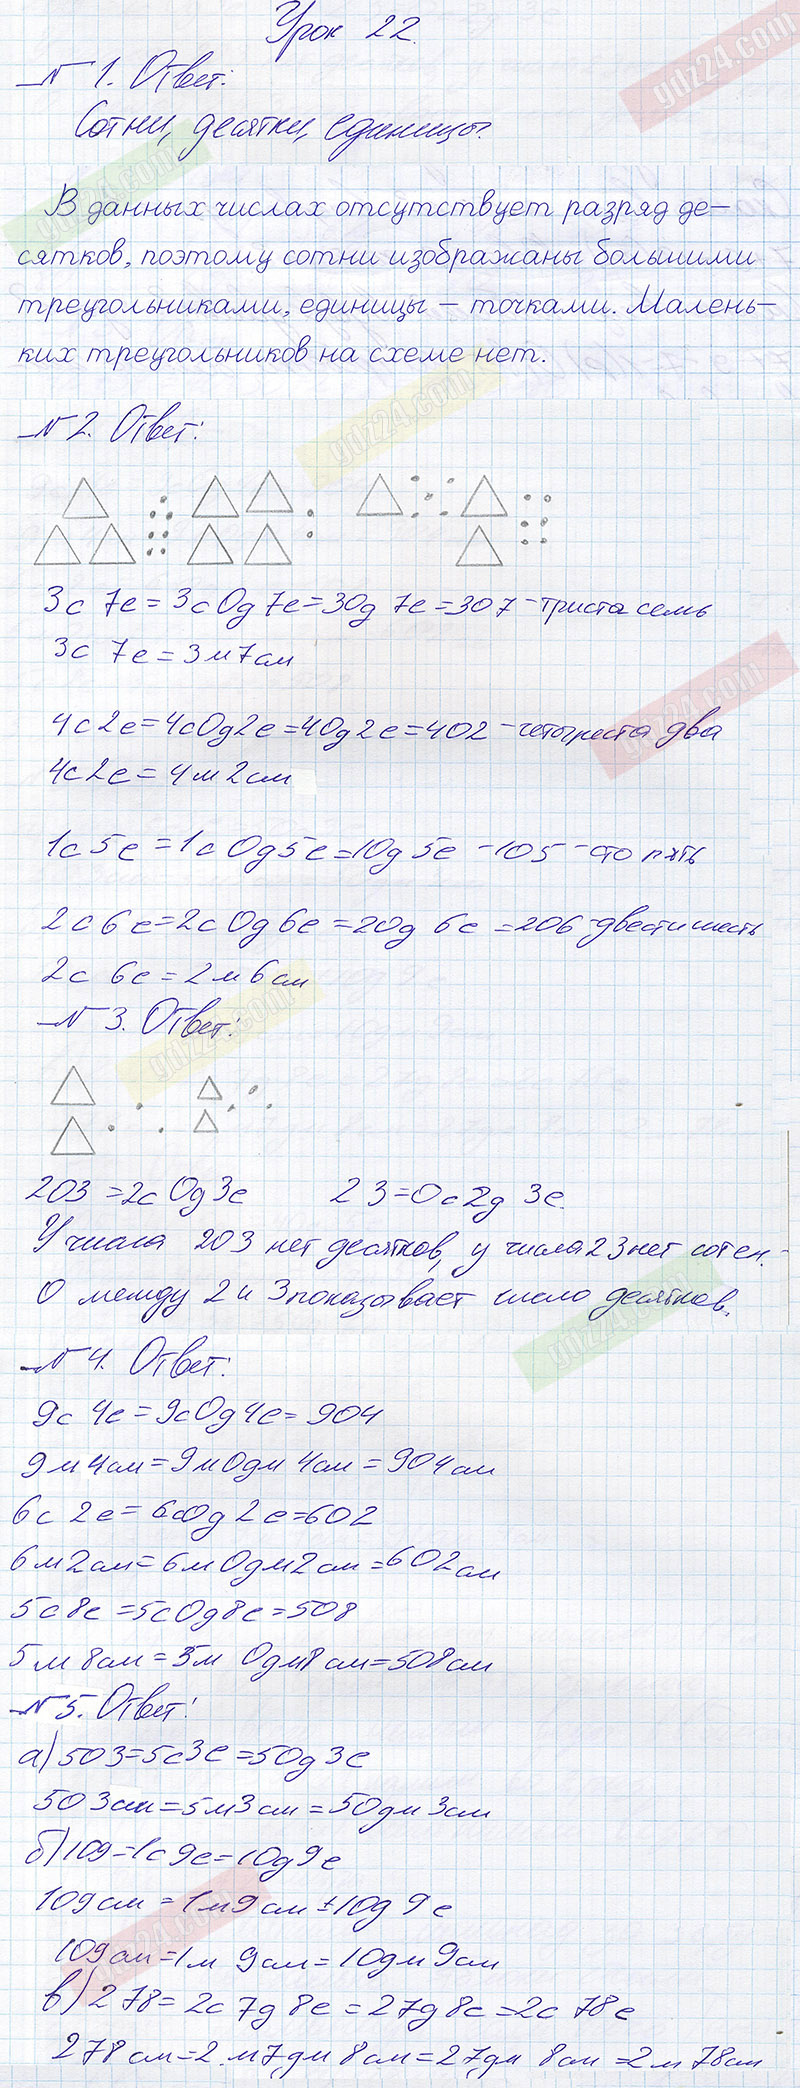 Урок 22.
№ 1. Ответ:
Сотни, десятки, единицы.
В данных числах отсутствует разряд де-
сятков, поэтому сотни изображаны большими
треугольниками, единицы – точками. Малень-
ких треугольников на схеме нет.
№ 2. Ответ:
3с 7е = 3с 0д 7е = 30д 7е = 307 – триста семь
3с 7е = 3м 7см
4с 2е = 4с 0д 2е = 40д 2е = 402 – четыреста два
4с 2е = 4м 2см
1с 5е = 1с 0д 5е = 10д 5е – 105 – сто пять
2с 6е = 2с 0д 6е = 20д 6е = 206 – двести шесть
2с 6е = 2м 6см
№ 3. Ответ:
203 = 2с 0д 3е 23 = 0с 2д 3е.
У числа 203 нет десятков, у числа 23 нет сотен.
0 между 2 и 3 показывает число десятков.
№ 4. Ответ:
9с 4е = 9с 0д 4е = 904
9м 4см = 9м 0дм 4см = 904см
6с 2е = 6с 0д 2е = 602
6м 2см = 6м 0дм 2см = 602см
5с 8е = 5с 0д 8е = 508
5м 8см = 5м 0дм 8см = 508см
№ 5. Ответ:
а) 503 = 5с 3е = 50д 3е
503см = 5м 3см = 50дм 3см
б) 109 = 1с 9е = 10д 9е
109см = 1м 9см = 10д 9е
109см = 1м 9см = 10дм 9см
в) 278 = 2с 7д 8е = 27д 8е = 2с 78е
278см = 2м 7дм 8см = 27дм 8см = 2м 78см
gdz24.com
gdz24.com
gdz24.com
gdz24.com
gdz24.com
gdz24.com
gdz24.com